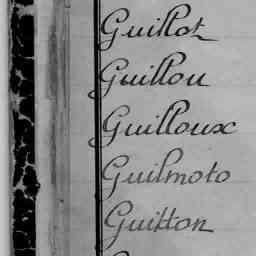 Guillot
Guillou
Guilloux
Guilmoto
Guitton